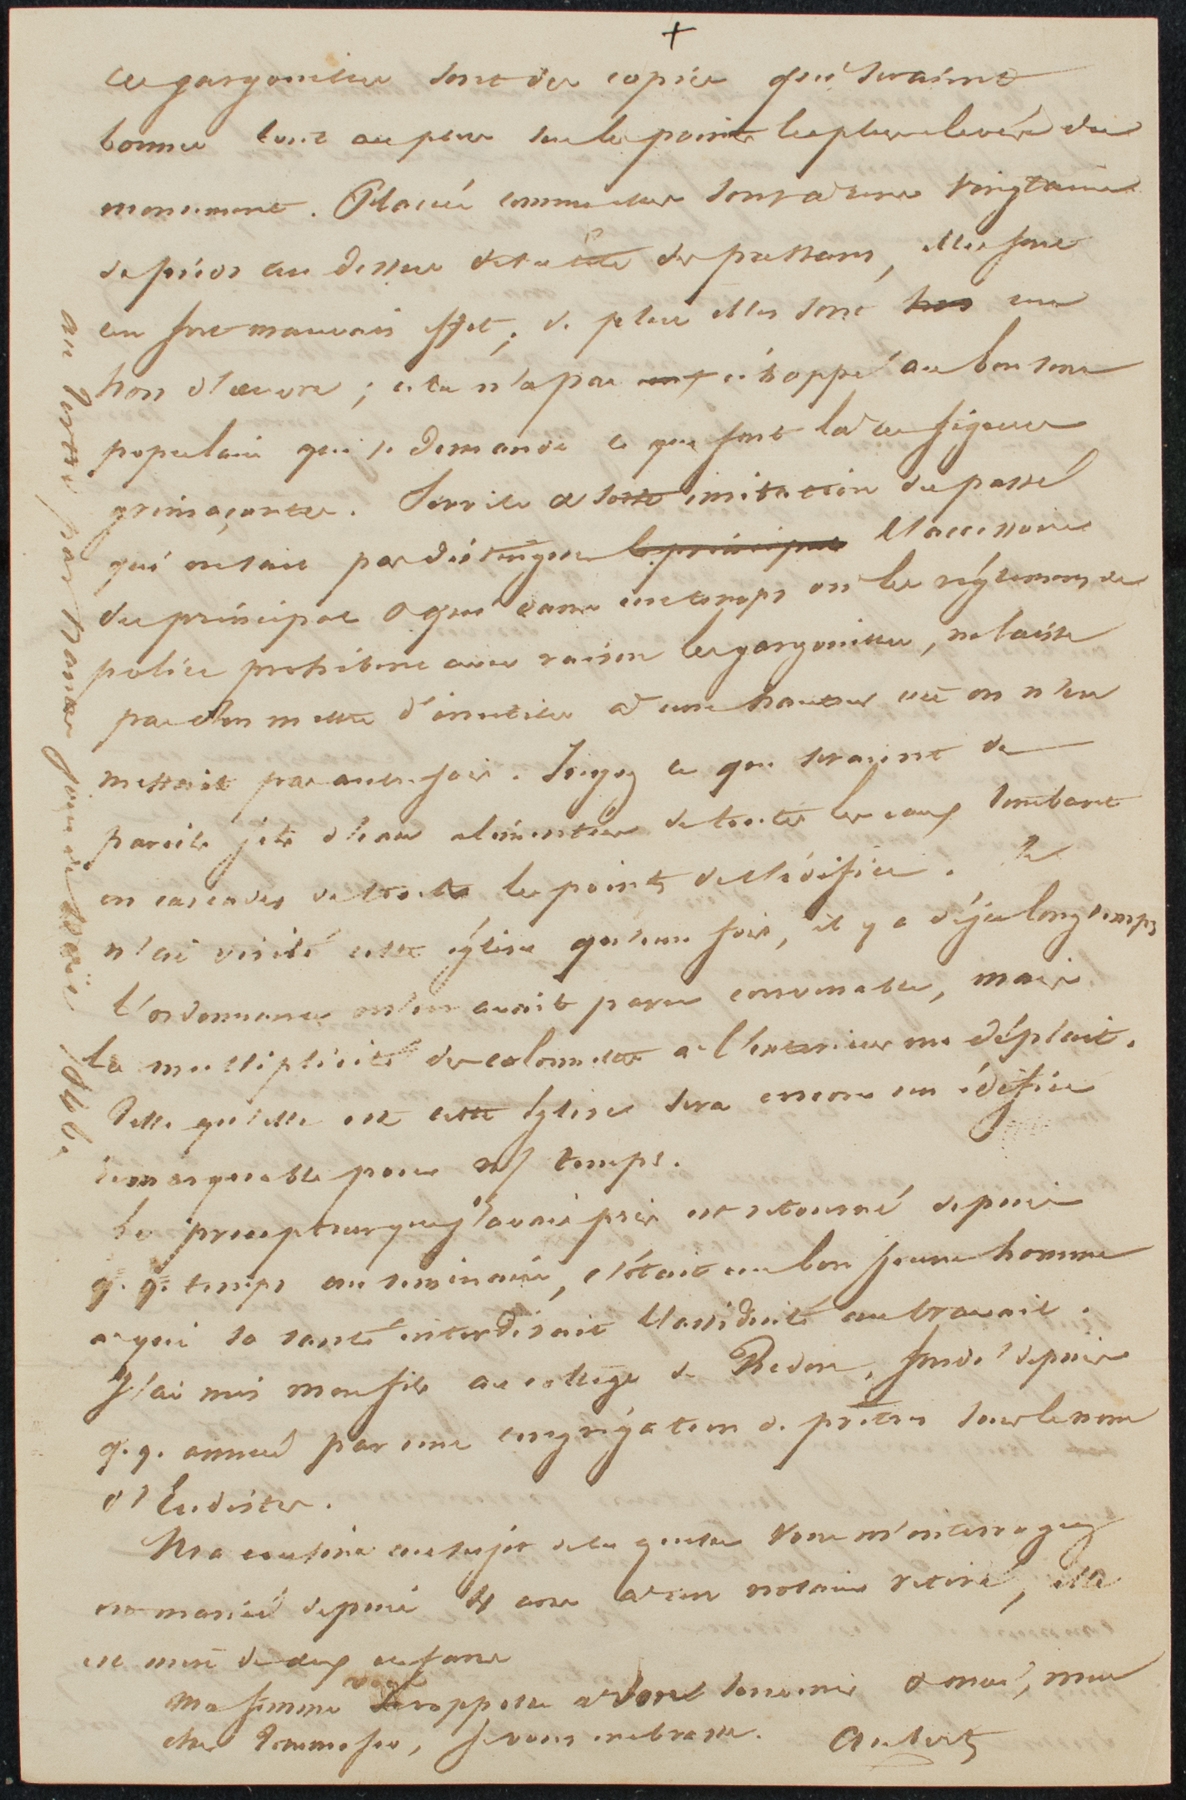 +
ces gargouilles sont des copies qui seraient
bonnes tout au plus sur les points les plus elevés du
monument. Placées comme elles sont à une vingtaine
de pieds au dessus de la tête des passans, elles font
un fort mauvais effet; de plus elles sont hors un
hors d'œuvre; cela n'a pas échappé au bon sens
populaire qui se demande ce que font là ces figures
grimaçantes. Servile et sotte imitation du passé
qui ne sait pas distinguer le principal l'accessoire
du principal et qui dans un temps où les réglemens de
police prohibent avec raison les gargouilles, ne laisse
pas d'en mettre d'inutiles à une hauteur où on n'en
mettait pas autrefois. Jugez ce que seraient de
pareils jets d'eau alimentés de toutes les eaux tombant
en cascades de tous les points de l'édifice. Je
n'ai visité cette église qu'une fois, il y a déjà longtemps
l'ordonnance m'en avait paru convenable, mais
la multiplicité des colonnettes à l'extérieur me déplait.
Telle qu'elle est cette Eglise sera encore un édifice
remarquable pour nos temps.
Le précepteur que j'avais pris est retourné depuis
q. q. temps au seminaire, c'était un bon jeune homme
à qui sa santé interdisait l'assiduité au travail.
J'ai mis mon fils au collége de Redon, fondé depuis
q. q. années par une congrégation de prêtres sous le nom
d'Eudistes.
Ma cousine au sujet de la quelle vous m'interrogez
est mariée depuis 4 ans à un notaire retiré, elle
est mère de deux enfans
Ma femme se rappelle à votre souvenir et moi, mon
cher , je vous embrasse. Aubert
au Tertre par Nantes 1846.